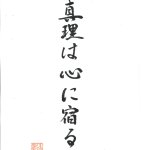 真理は心に宿る